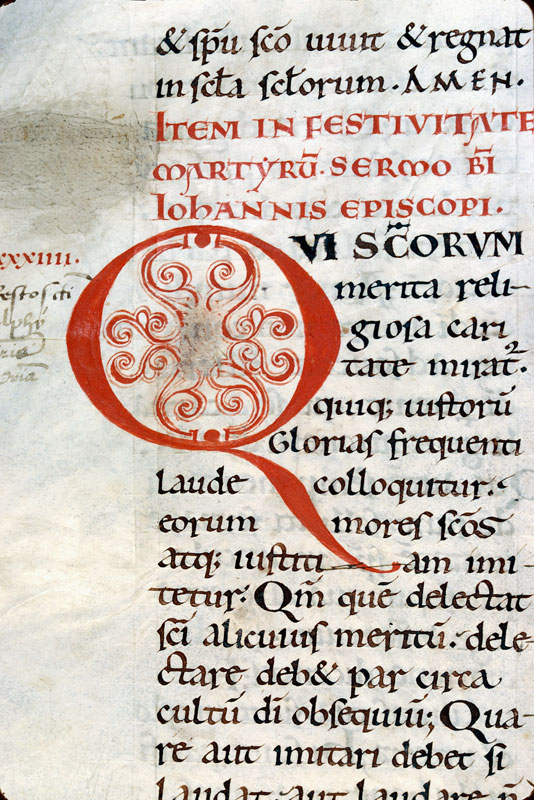 & sp̄u sc̄o uiuit & regnat
in scła scłorum. AMEN.
ITEM IN FESTIVITATE
MARTYRŪ. SERMO BĪ
IOhANNIS EPISCOPI.
xxxiiii.
QVI SC̄ORVM
merita reli-
giosa cari
tate mirat᷑.
quiq; iustorū
Glorias frequenti
laude colloquitur.
eorum mores sc̄os
atq; iustiti am imi-
tetur. Qm̄ quē delectat
sc̄i alicuius meritū. dele-
ctare deb& par circa
cultū dī obsequiū; Qua-
re aut imitari debet si
laudat. aut laudare n̄